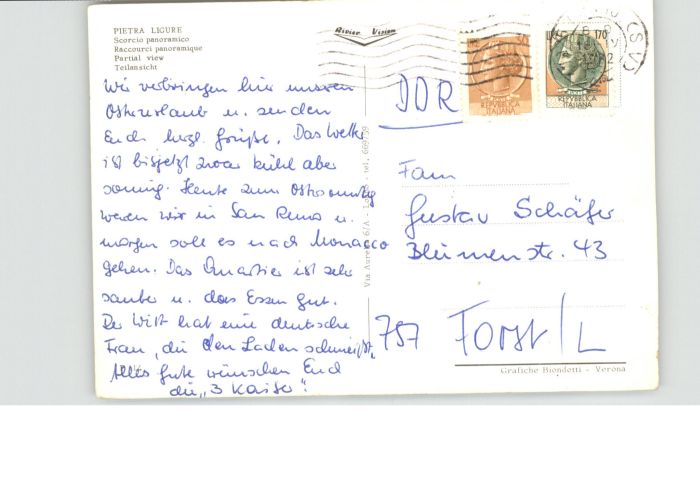 PIETRA LIGURE
Scorcio panoramico
Raccourci panoramique
Partial view
Teilansicht
Wir verbringen hier unseren
Osterurlaub u. senden
Euch herzl. Grüße. Das Wetter
ist bis jetzt zwar kühl aber
sonnig. Heute zum Ostersonntag
waren wir in San Remo u.
morgen soll es nach Monacco
gehen. Das Quartier ist sehr
sauber u. das Essen gut.
Der Wirt hat eine deutsche
Frau, die den Laden schmeißt.
Alles gute wünschen Euch
die „3 Kaiser"!
Via Aurelia 6/A - tel. 669739
DDR
Fam
Gustav Schäfer
Blumenstr. 43
757 Forst/L
Grafiche Biondetti - Verona
REPVBBLICA
ITALIANA
170
REPVBBLICA
ITALIANA